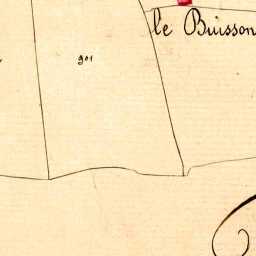 le Buisson
901